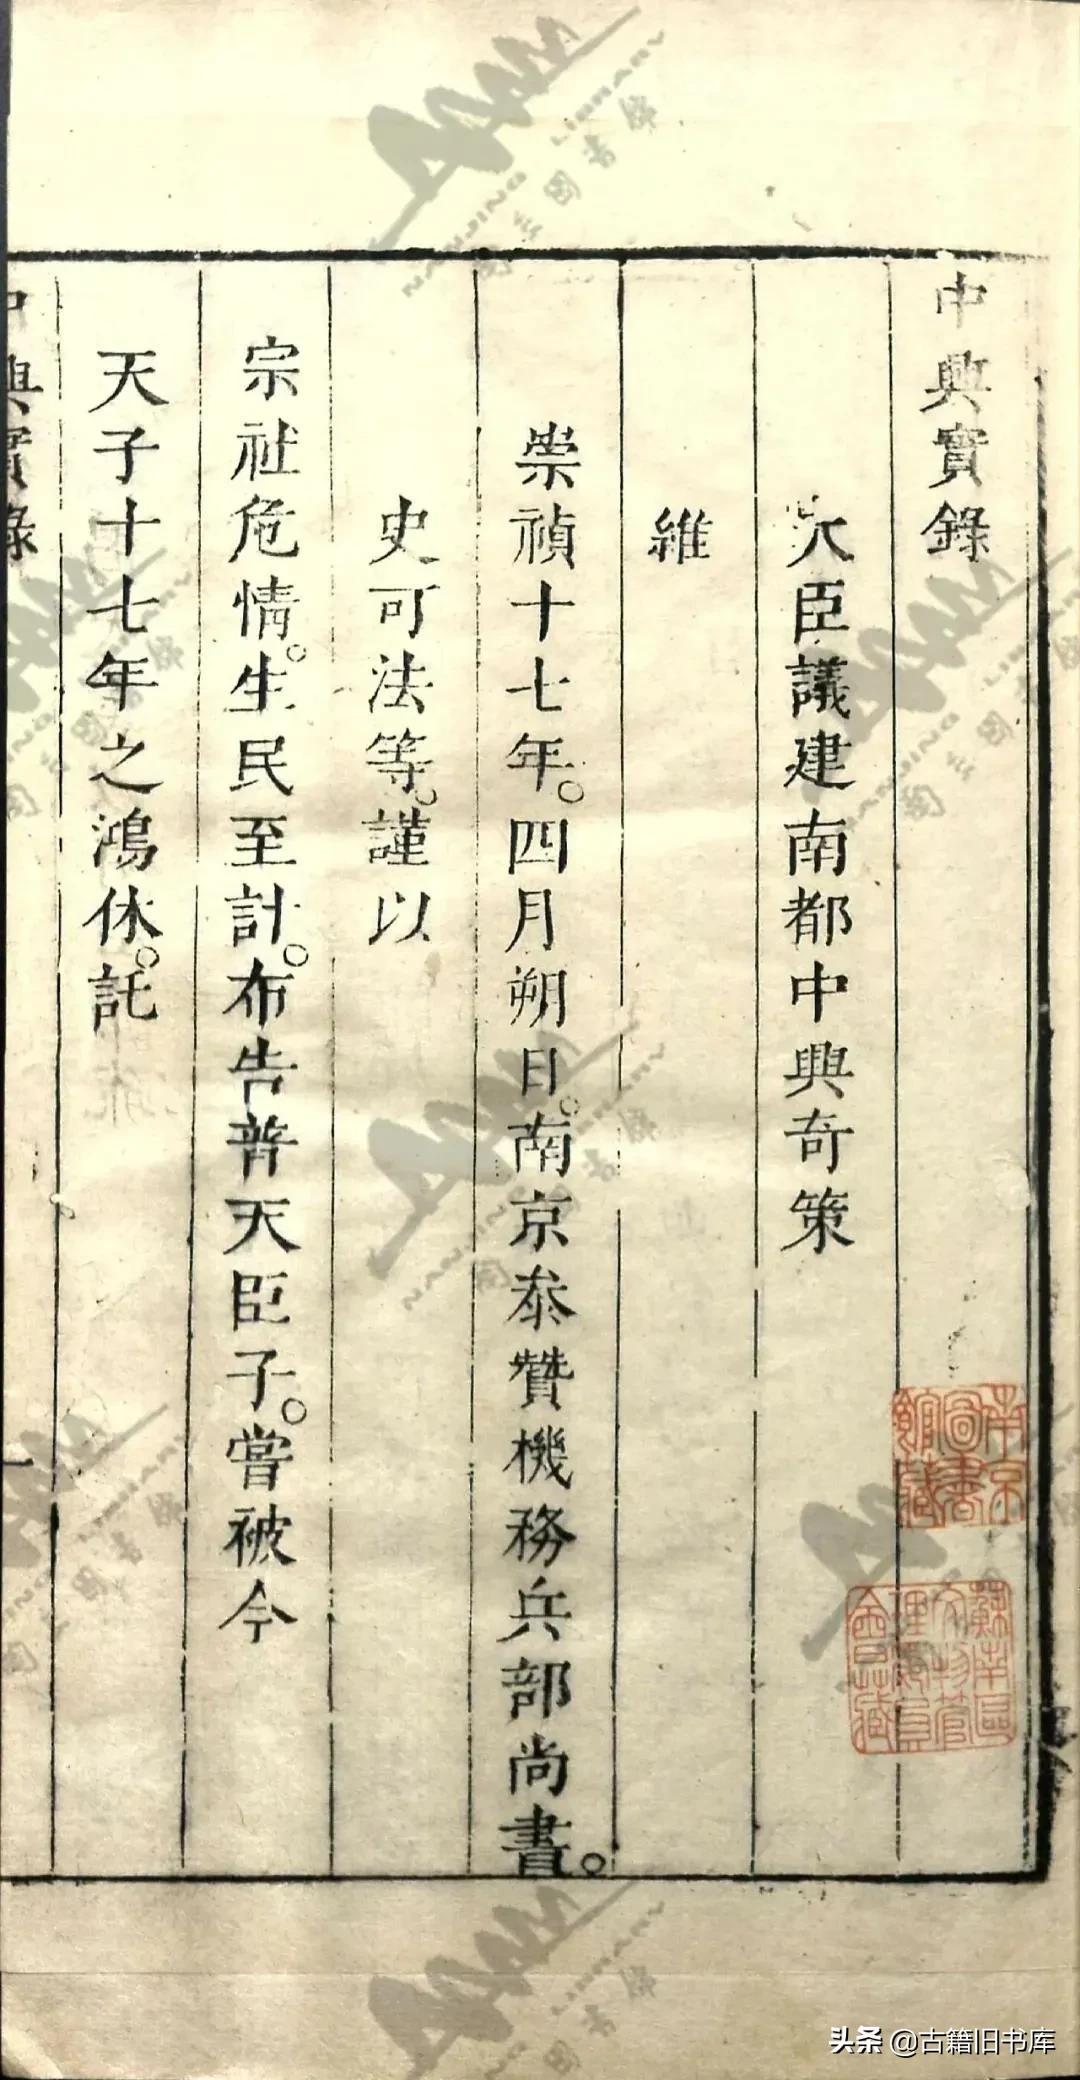 中興實錄
大臣議建南都中興奇策
維
崇禎十七年。四月朔日。南京叅贊機務兵部尚書。
史可法等。謹以
宗社危情。生民至計。布告普天臣子。嘗被今
天子十七年之鴻休。託
中興實錄
一
南京圖書館藏
蘇南區文物管理委員會藏
头条 @古籍旧书库